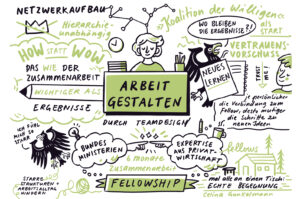 NETZWERKAUFBAU
Hierarchie-
unabhängig
HOW STATT WOW
DAS WIE DER
ZUSAMMENARBEIT
WICHTIGER ALS
ERGEBNISSE
Koalition der Willigen
als
START
WO BLEIBEN
DIE ERGEBNISSE?!
VERTRAUENS-
VORSCHUSS
NEUES
LERNEN
ARBEIT
GESTALTEN
DURCH TEAMDESIGN
persönlicher
die Verbindung zum
Fellow, desto mutiger
die Schritte zu
neuen Ideen
ICH FÜHL
MICH SO
STARR
STARRE
STRUKTUREN +
ARBEITSALLTAG
HINDERN
BUNDES
MINISTERIEN
6 monate
zusammenarbeit
EXPERTISE
AUS PRIVAT-
WIRTSCHAFT
FELLOWSHIP
fellows
mal alle an einem Tisch:
ECHTE BEGEGNUNG